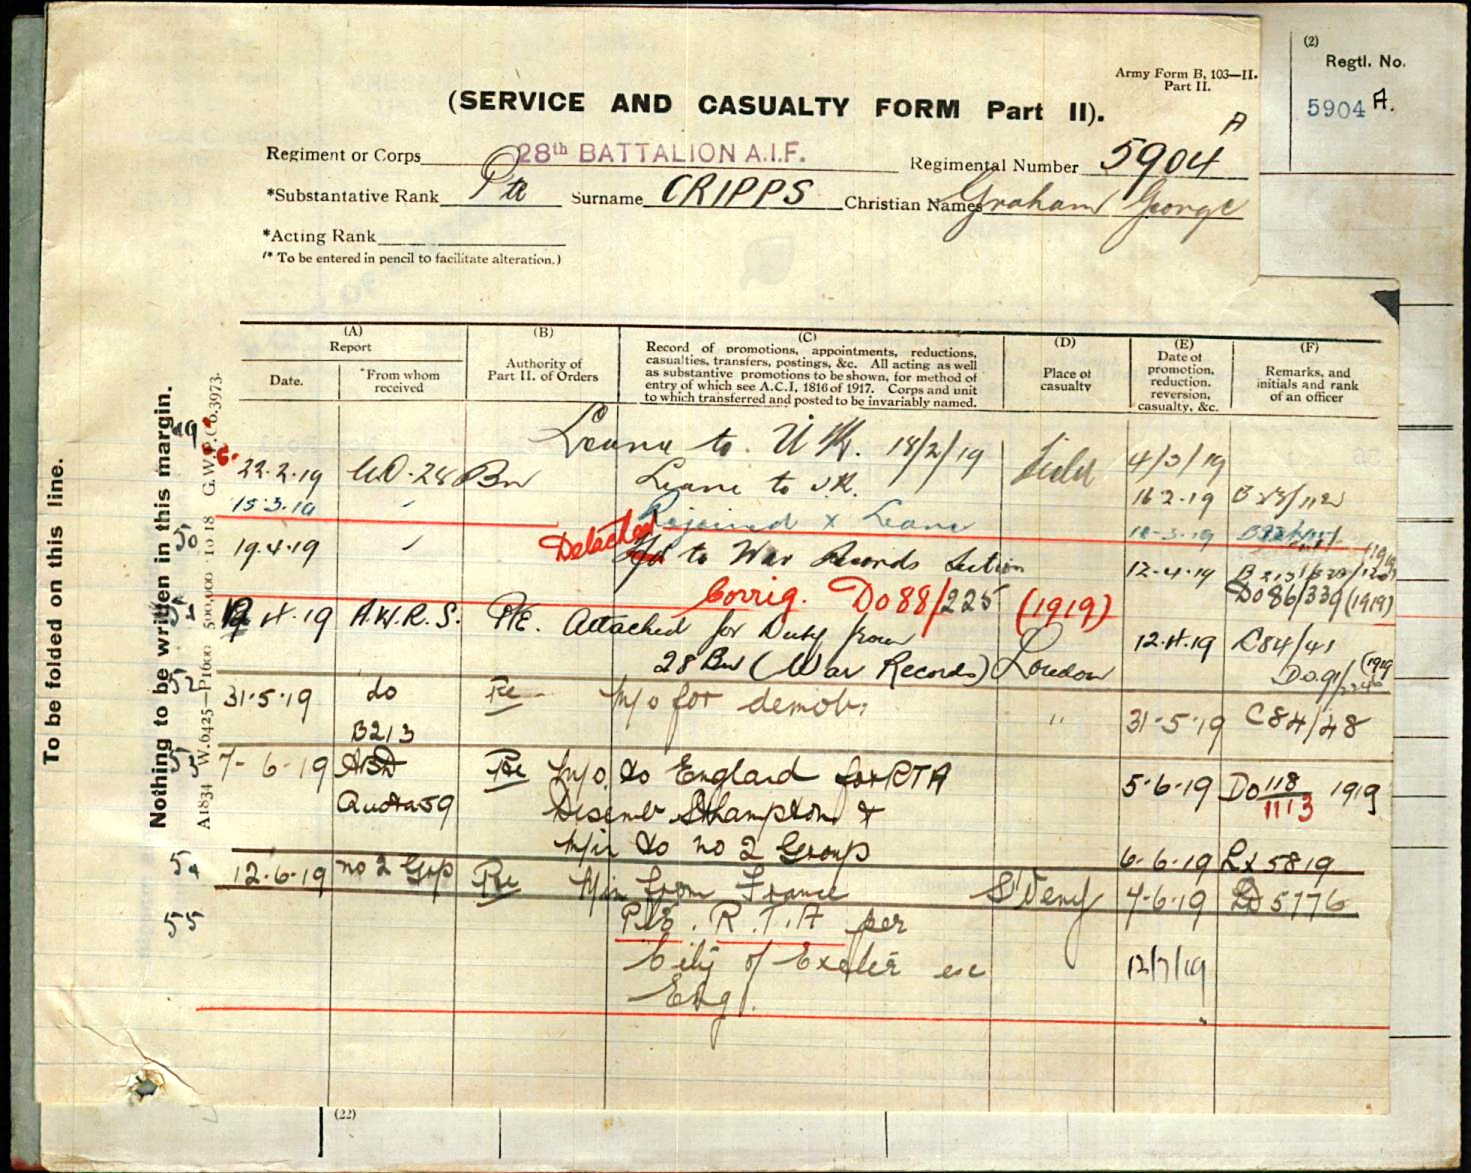 (2)
Regtl. No.
5904 A.
Army Form B. 103—II.
Part II.
(SERVICE AND CASUALTY FORM Part II).
A
Regiment or Corps 28th BATTALION A.I.F. Regimental Number 5904
*Substantative Rank Pte Surname CRIPPS Christian Names Graham George
*Acting Rank
(* To be entered in pencil to facilitate alteration.)
To be folded on this line.
Nothing to be written in this margin.
(A)
Report
Date.
*From whom
received
(B)
Authority of
Part II. of Orders
(C)
Record of promotions, appointments, reductions,
casualties, transfers, postings, &c. All acting as well
as substantive promotions to be shown, for method of
entry of which see A.C.I, 1816 of 1917. Corps and unit
to which transferred and posted to be invariably named.
(D)
Place of
casualty
(E)
Date of
promotion,
reduction,
reversion,
casualty, &c.
(F)
Remarks, and
initials and rank
of an officer
Leave to U.K. 18/2/19 Field 4/3/19
22.2.19 28 Bn Leave to UK. 16 2.19
15.3.19 Rejoined x Leave
50 19.4.19 Detached to War Records Section 12.4.19
Do 86/339 (1919)
Corrig. Do 88/225 (1919)
19.4.19 A.W.R.S. Attached for Duty from 12.4.19 C84/41
28 Bn (War Records) London
52 31.5.19 do M/o for demob. " 31-5-19 C84/48
B213
7-6-19 M/o to England for RTA 5.6.19 Do 118/1113 1919
Quota 59 Disemb S'Hampton &
M/in to no 2 Group 6-6-19 5819
12.6.19 no 2 Grp M/in from France 4-6-19 5776
55 R.T.A per
City of Exeter ex 12/7/19
Eng.
(22)